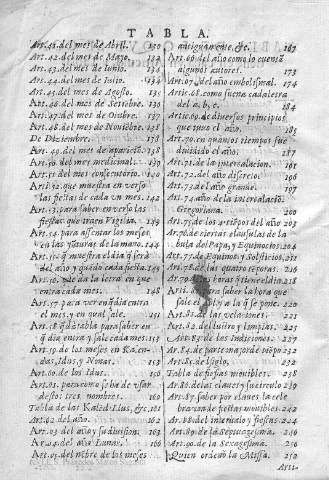 TABLA.
Art. 41. del mes de Abril. 130
Art. 42. del mes de Mayo. 132
Art. 43. del mes de Iunio. 134
Art. 44. del mes de Iulio. 134
Art. 45. del mes de Agosto. 135
Art. 46. del mes de Setebre. 136
Art. 47. del mes de Otubre. 137
Art. 48. del mes de Nouiebre. 138
De Diziembre. 138
Art. 49. del mes de aparicio. 138
Art. 50. del mes medicinal. 139
Art. 51. del mes consecutorio.
Art. 52. que muestra en verso
las fiestas de cada vn mes. 142
Art. 53. para saber en verso las
fiestas que traen Vigilia.
Art. 54. para assentar los meses
en las
Art. 55. q muestra el dia q será
del año y quado cada fiesta.
Art. 56. De la letra en que
entra cada mes. 148
Art. 57. para ver en q dia entra
el mes, y en qual sale. 151
Art. 58. q dtabla para saber en
q dia entra y sale cada mes. 153
Art. 59. de los meses en Kalen-
das, Idus, y Nonas. 153
Art. 60. de los Idus.
Art. 61. para como se ha de vsar
destos tres nombres. 160
Tabla de las Kaled. Idus, &c. 161
Art. 62. del año.
Art. 63. del año y su diuision. 163
Art. 64. del año Lunar. 166
Art. 65. del nobre de los meses
antiguamente, &c. 167
Art. 66. del año como lo cuenta
algunos autores. 173
Art. 67. del año embolismal. 174
Art. 68. como suena cada letra
del a, b, c. 184
Art. 69. de diuersos principios
que tuuo el año. 185
Art. 70. en quantos tiempos fue
diuidido el año.
Art. 71. de la intercalacion.
Art. 72. del año discreto. 196
Art. 73. del año grande. 197
Art. 74. año de la intercalacio
Gregoriana. 200
Art. 75. de los artipos del año 207
Art. 76. de ciertas clausulas de la
bula del Papa, y Equinocios
Art. 77. de Equinocios y Solsticios.
Art. 78. de las quatro teporas. 221
horas q tiene el dia. 218
para saber la hora que
sale el sol, y a la q se pone. 222
Art. 81. de las velaciones. 231
Art. 82. del lustro y limpias. 231
Art. 83. de las Indiciones. 231
Art. 84. de par como per odio. 232
Art. 85. del siglo. 232
Tabla de fiestas mouibles. 234
Art. 86. de las claues y su circulo 238
Art. 87. saber por claues la cele
bracion de fiestas mouibles. 242
Art. 88. del interualo y fiestas. 247
Art. 89. de la Septuagesima. 250
Art. 90. de la Sexagesima. 256
Quien ordenò la Missa. 258